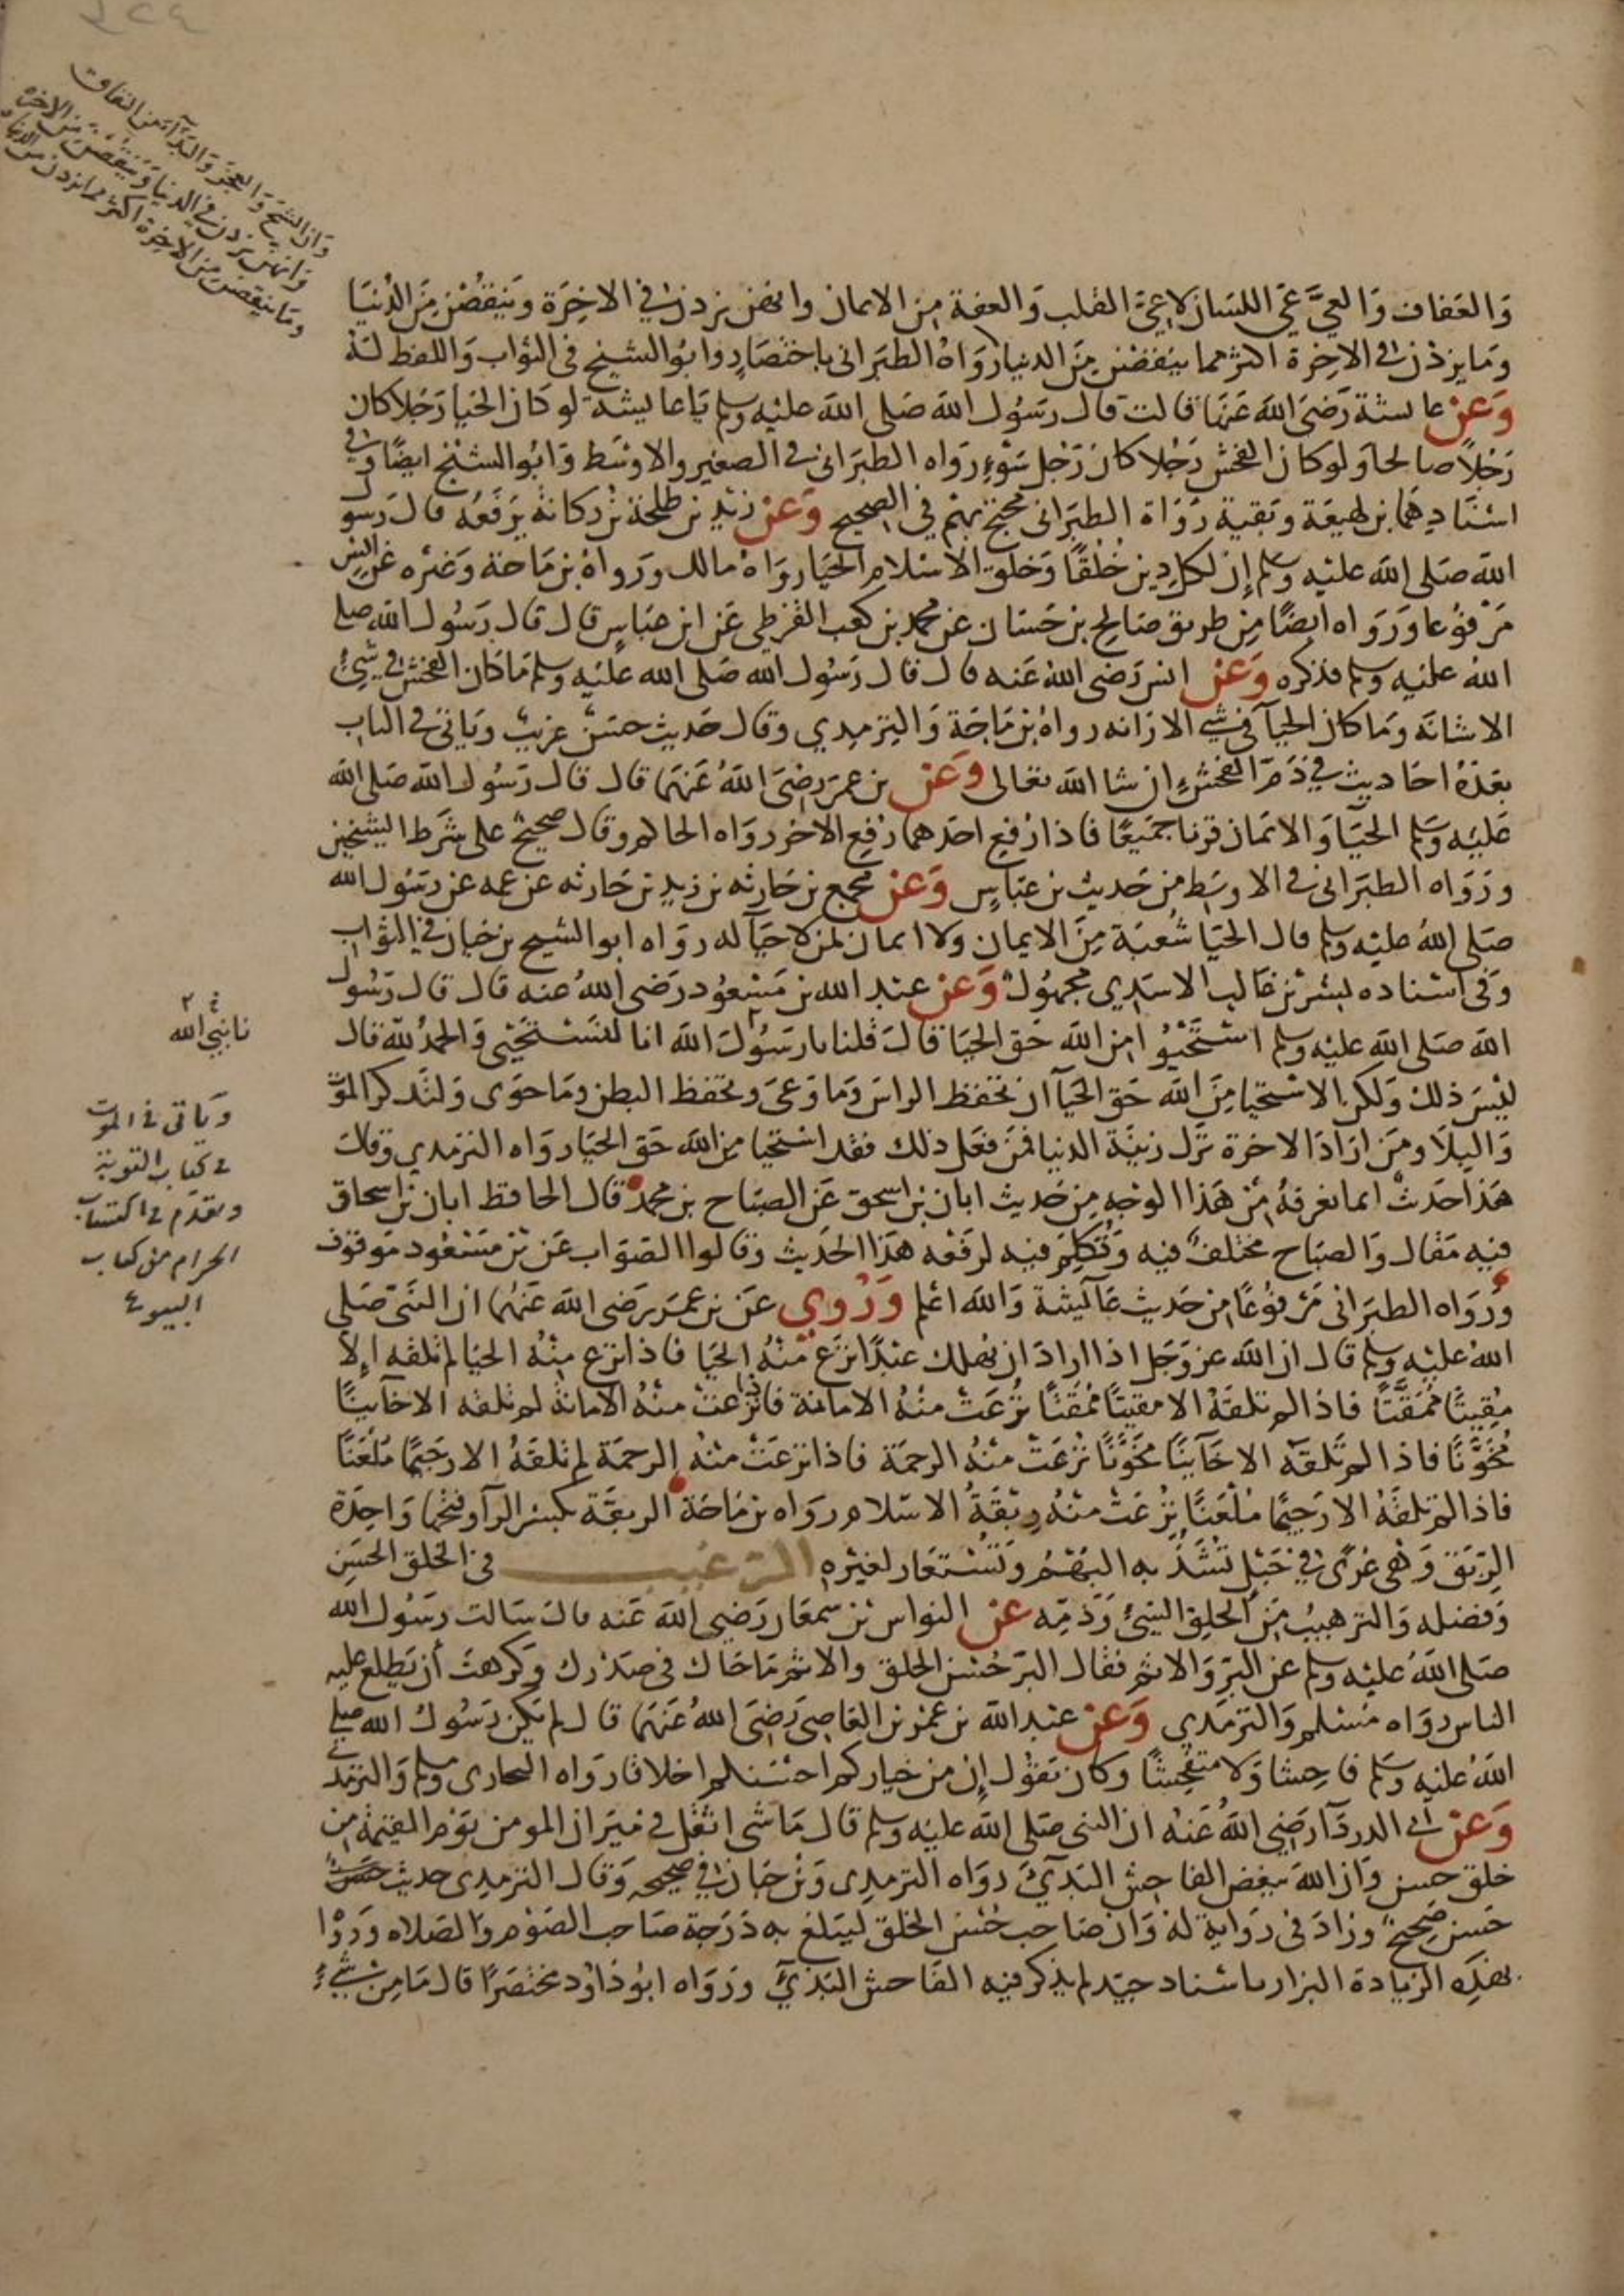 وان الشح والعجز والبذآء من النفاق
وانهن يزدن في الدنيا وينقصن من الاخرة
وما ينقصن من الاخرة اكثر مما يزدن من الدنيا
وَالعَفاف وَالعيَّ عَيّ اللسَان لاعِيَّ القلب وَالعفة مِن الايمان وانهن يزدن في الاخِرَة ويَنقصْنَ مِنَ الدُنيَا
ومَا يزدْن في الاخِرة اكثر مما ينقصْن مِنَ الدنيا روَاهُ الطبَرانى باختصَارٍ وابوُ الشيخ في الثواب وَاللفظ لهُ
وَعَنْ عايشة رَضىَ اللهَ عَنهَا قالت قال رسَوُل اللهَ صَلى اللهَ عليْه وسلم يَاعايشة لو كان الحَيا رَجُلا كان
رَجُلاً صالحا ولو كان الفحش رَجُلا كان رَجُل سَوْءٍ رَواه الطبرَانى في الصَغير والاوْسَط وَابُو الشيْخ ايضًا وفي
اسْنَادِهمَا بن لهيعَة وبَقية رُوَاة الطبَرانى محتج بهمْ في الصحيح وَعَنْ زيْدِ بن طلحَة بْن ركانة يَرْفعُهُ قال رَسوُل
اللهَ صَلى اللهَ عليْه وَسلم إن لكل دِين خُلقًا وَخلق الاسْلام الحيَا روَاهُ مالك ورَواهُ بن مَاجَة وَغيْره عَن انسٍ
مَرْفوُعا ورَوَاه ايضًا مِن طريق صَالح بن حَسَان عَن محمد بن كعب القرظي عَن ابن عبَاسٍ قال قال رَسُول الله صلى
اللهُ عليْه وسلم فذكره وَعَنْ انس رَضى اللهُ عَنه قال قال رَسُول الله صَلى الله عليْه وسلم مَا كان الفحش في شيْءٍ
الا شانَه ومَا كان الحيآ في شي الا زانه رواهُ بن مَاجَة وَالترمِدِي وقال حَديث حسَنٌ غريبٌ ويَاتي في البَاب
بعَدَهُ احَاديث في ذمّ الفحش إن شا اللهَ تعالى وَعَنْ بن عمَر رَضىَ اللهُ عَنهَما قال قال رَسُول اللهَ صَلى الله
عَليْه وَسَلم الحيَا وَالايمَان قرنا جميَعًا فاذا رُفع احَدهمَا رُفع الاخر روَاه الحاكم وقال صحيحٌ على شرَط الشيخين
ورَوَاه الطبَرانى في الاوسَط مِن حَديث بن عبَاسٍ وَعَنْ مجمع بن حَارثه بن زيدِ بن حَارثه عن عمه عن رسَوُل الله
صَلى اللهُ عليْه وسَلم قال الحيَا شُعبَة مِنَ الايمان ولا ايمان لمن لا حَيآ له روَاه ابو الشيخ بن حَيان في الثوَاب
وَفي اسْنَاده بشرْ بْن غالب الاسَدِي مجْهوُلٌ وَعَنْ عبَدِ الله بن مَسْعُود رَضى اللهُ عنه قال قال رَسُول
اللهَ صَلى اللهِ عليْه وَسلم اسْتَحْيُوا مِن اللهَ حَق الحيَا قال قلنا يا رسَوُل اللهَ انا لنَسْتحَيى وَالحمدُ للهَ قال
نا نبي الله
ليْسَ ذلك وَلكن الاسْتحيا مِنَ اللهَ حَق الحيَآ ان تحفظ الراسَ وَمَا وَعىَ وتحفظ البطن ومَا حوَى وَلتَذكر الموَتْ
وَالبلَا ومَن ارَادَ الاخرة ترَك زينَة الدنيا فمَن فعَل ذلك فقد استحيَا مِن اللهَ حَق الحيَا روَاه الترمدي وقال
هَذا حَديثٌ انما نعَرفهُ مِنْ هَذا الوَجْهِ مِن حَديث ابان بن اسحق عَن الصبَاح بن محمدٍ قال الحافظ ابان بن اسحاق
فيْه مَقال وَالصبَاح مختلفٌ فيه وَتُكلم فيْه لرَفعْه هَذا الحَديث وَقالوا الصَوَاب عَن بْن مَسْعُود مَوقوف
ورَوَاه الطبَرانى مَرْفوُعًا مِن حَديث عَآئيشة وَالله اعْلم وَرُوِي عَن بن عمَر رَضى اللهَ عَنهُما ان النَبّي صَلى
ويَاتى في الموت
في كتاب التوبة
وتقدم في اكتساب
الحرام من كتاب
البيوع
اللهُ عليْه وسَلم قال ان اللهَ عز وَجَل اذا ارادَ ان يُهلك عبْدًا نزَع منْهُ الحيَا فاذا نزع منْهُ الحيَا لم تلقه إلا
مُقِيتًا ممُقتًا فاذا لم تلقهُ الا مقيتًا ممُقتًا نُزعَتْ منْهُ الامانة فاذا نزعَتْ منْهُ الامَانةُ لم تلقه الا خآينًا
مُخوَّنًا فاذا لم تَلقَهْ الا خَآينًا مُخَوَّنًا نُزعَتْ منْهُ الرحمَة فاذا نزعَتْ منْهُ الرحمَة لم تلقَهُ الا رَجِيمًا مُلعَنًا
فاذا لم تلقهُ الا رَجيمًا مُلعَنًا نُزعَتْ منْهُ رِبْقَةُ الاسْلام روَاه بن مَاجَة الربقَة بكسر الرآ وفتحها وَاحِدَة
الرّبَق وَهْى عُرًى في حَبْل تشَدُّ به البَهْمُ وَتُسْتعَار لغيْره الترغيب في الخلق الحسَن
وَفضله وَالترهيبُ مِنَ الخلِق السَّيئ وَذمّه عَن النواس بْن سمعَان رَضي اللهَ عَنه قال سَالت رسَوُل الله
صَلى اللهُ عليْه وسلم عن البر وَالاثم فقال البرّ حُسْن الخلق والاثم مَا حَاك في صَدْرك وَكَرهتَ أن يَطلع عليه
الناس روَاه مُسْلم وَالترمَذي وَعَنْ عبْد اللهَ بن عمْرو بْن العَاصى رَضىَ اللهُ عَنهَما قال لم يَكن رَسُول الله صلى
اللهُ عليْه وَسَلم فاحِشا وَلا متفحِشًا وكان يَقُول إن من خيَاركم احسَنكم اخلاقا روَاه البخارى وسلم وَالترمذي
وَعَنْ أبي الدردَآ رَضيَ اللهُ عَنْهُ ان النبى صَلى اللهُ عليْه وسلم قال مَا شى اثقَل في ميَزان المومن يَوْم القيمَة مِن
خلق حسَن وَان اللهَ يبغض الفاحِش البَذيّ روَاه الترمِدى وَبْن حبَان في صحيحه وَقال الترمِدى حديث حسن
حَسن صَحيحٌ وزادَ في روَاية لهُ وَان صَاحب حُسْن الخلق ليَبْلغ به دَرَجة صَاحب الصَوْم وَالصَلاه ورَوَا
بهَذِه الزيَادة البزار باسْنَاد جيّد لم يذكر فيْه الفَاحش البَذيّ ورَوَاه ابوُ دَاوُد مختصَرًا قال مَا مِن شَيْءٍ